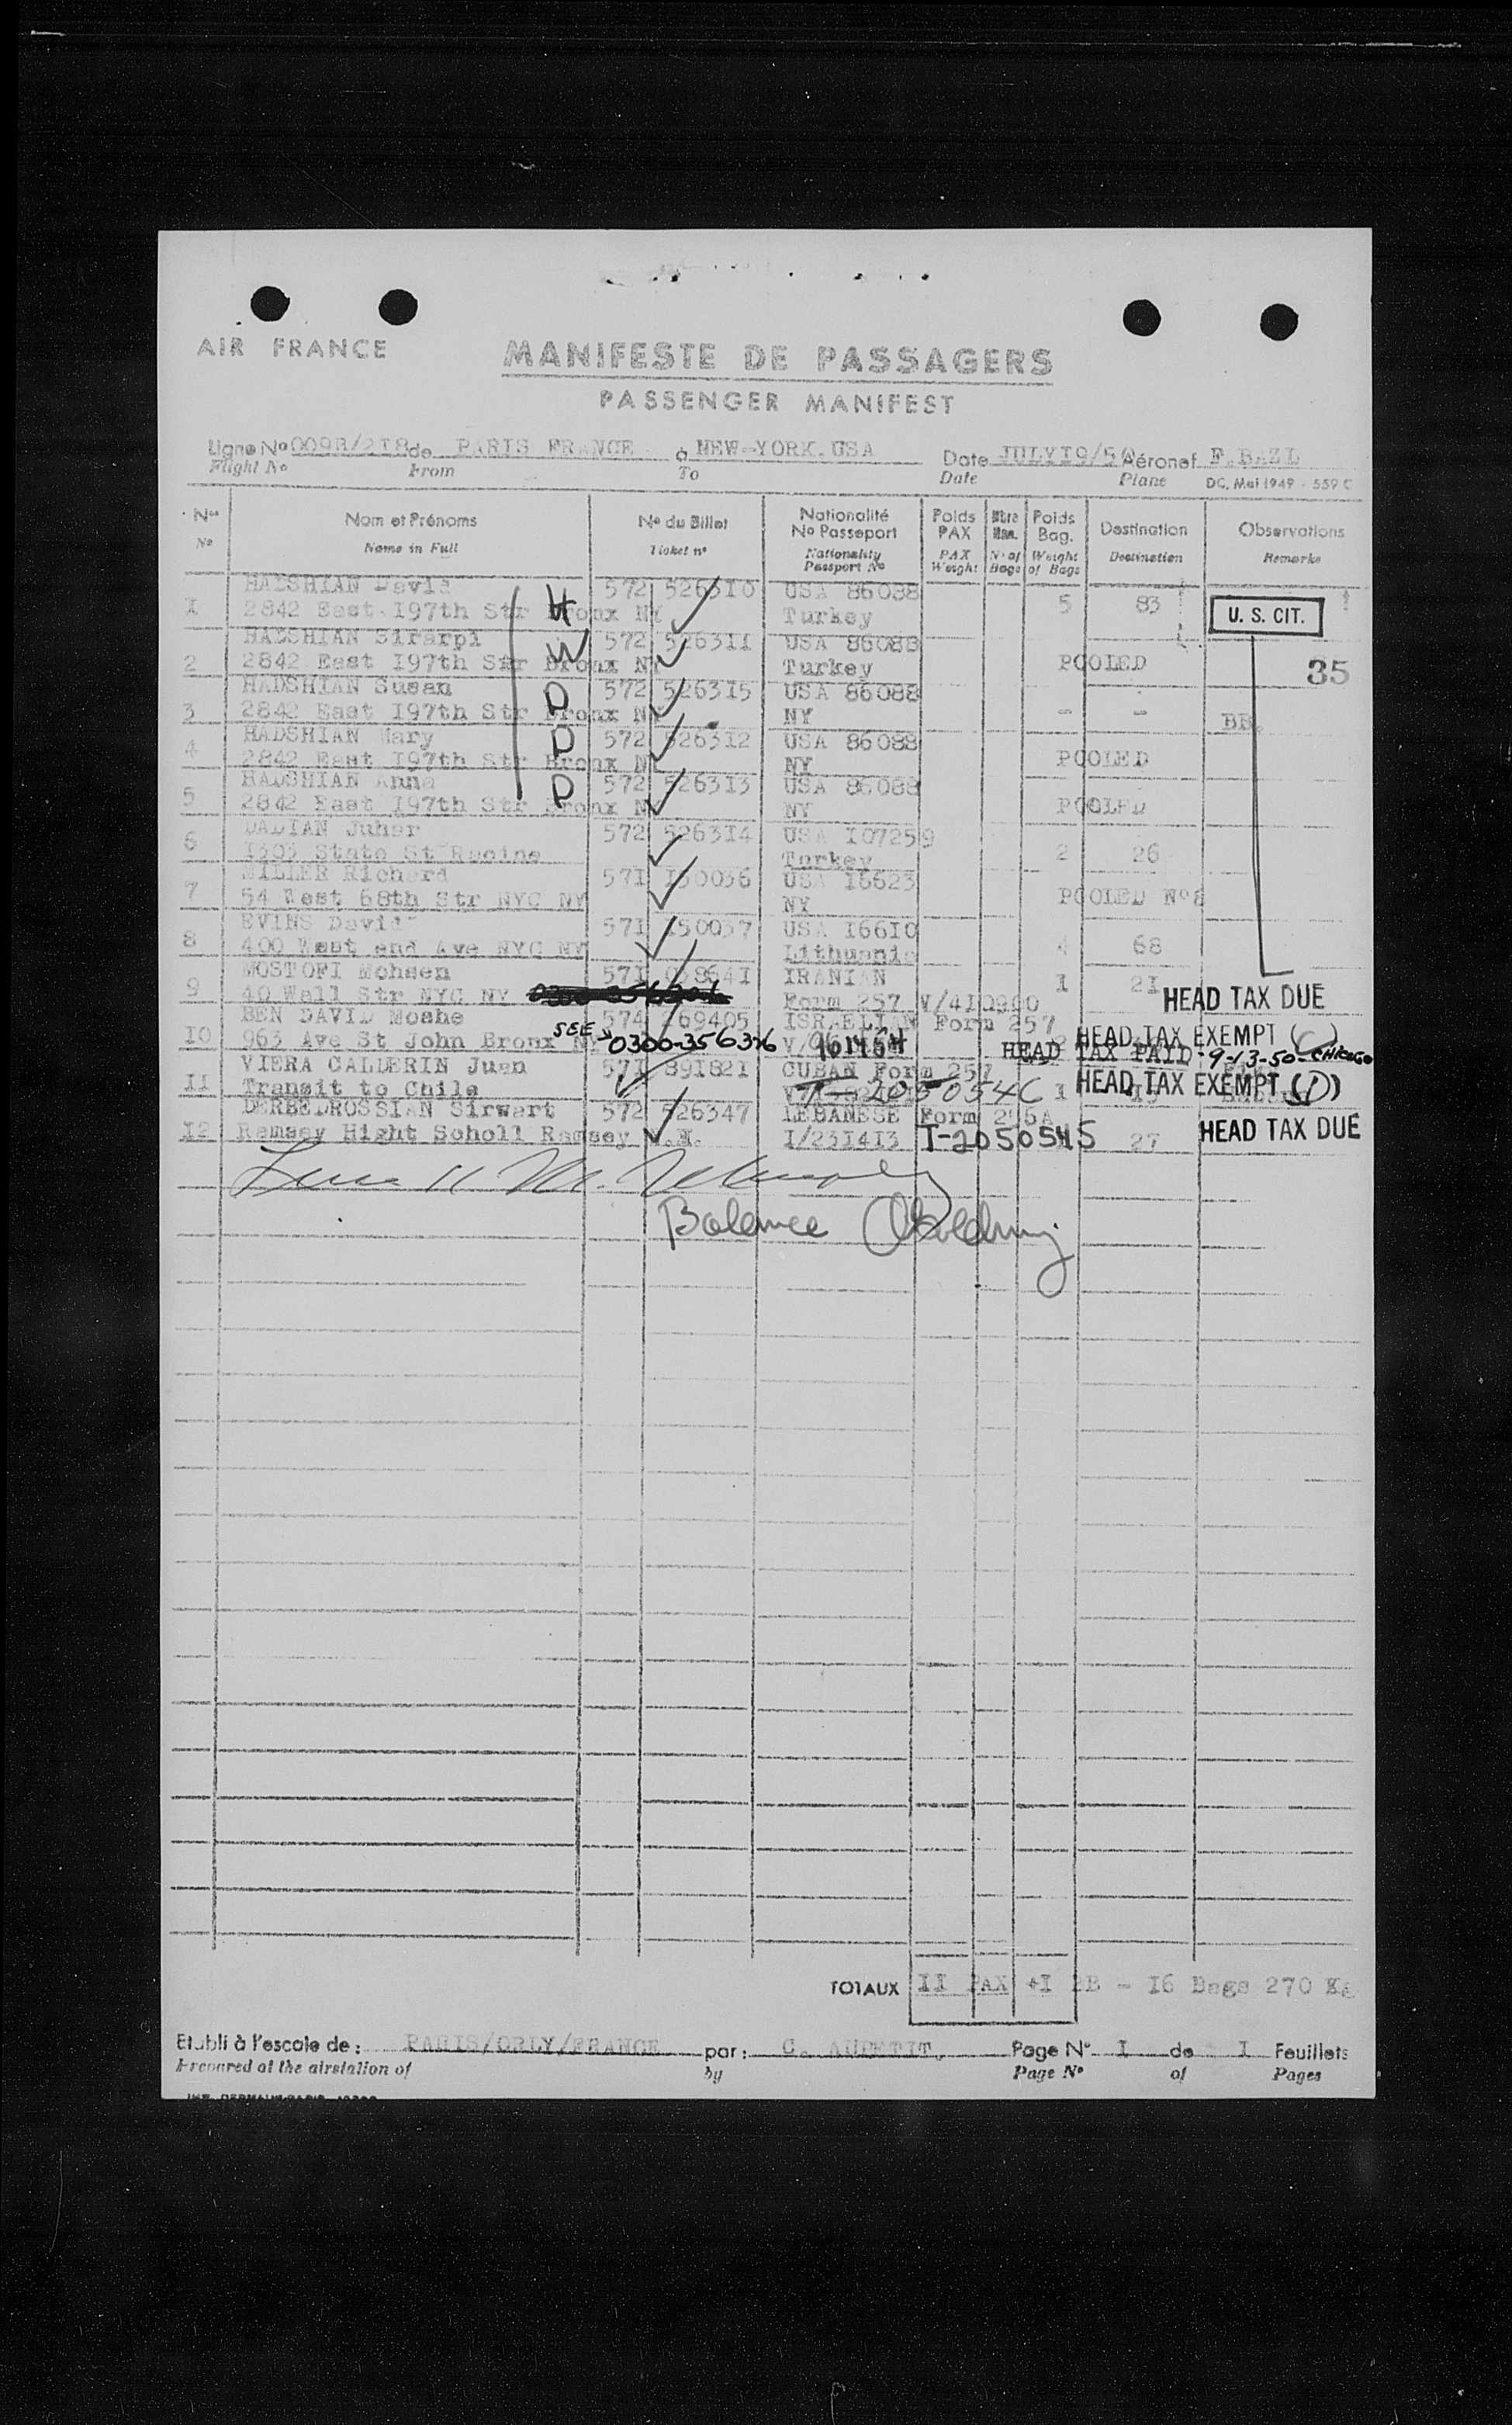 AIR FRANCE
MANIFESTE DE PASSAGERS
PASSENGER MANIFEST
Ligne No 009B/2I8 de PARIS FRANCE à NEW-YORK.USA Date JULYI9/50 Aéronef F.BAZL
Flight No From To Date Plane DC. Mai 1949 - 559 C
Nos Nom et Prénoms No du Billet Nationalité No Passeport Poids PAX Poids Bag. Destination Observations
No Name in Full Ticket no Nationality Passport No PAX Weight No of Bags Weight of Bags Destination Remarks
HADSHIAN David H 572 5263I0 USA 86088
I 2842 East I97th Str Bronx NY Turkey 5 83 U. S. CIT.
HADSHIAN Sirarpi W 572 5263II USA 86088
2 2842 East I97th Str Bronx NY Turkey POOLED 35
HADSHIAN Susan D 572 5263I5 USA 86088
3 2842 East I97th Str Bronx NY NY - - BB.
HADSHIAN Mary D 572 5263I2 USA 86088
4 2842 East I97th Str Bronx NY NY POOLED
HADSHIAN Anna D 572 5263I3 USA 86088
5 2842 East I97th Str Bronx NY NY POOLED
DADIAN Juhar 572 5263I4 USA I07259
6 I303 State St Racine Turkey 2 26
MILLER Richard 57I I50036 USA I6623
7 54 West 68th Str NYC NY NY POOLED No8
EVINS David 57I I50037 USA I66I0
8 400 West end Ave NYC NY Lithuania 4 68
MOSTOFI Mohsen 57I 03864I IRANIAN I 2I
9 40 Wall Str NYC NY Form 257 V/4I0900 HEAD TAX DUE
BEN DAVID Moshe 574 269405 ISRAELIAN Form 257
I0 963 Ave St John Bronx NY SEE 0300-356376 V/ 961464 HEAD TAX EXEMPT (C)
HEAD TAX PAID - 9-13-50 - CHICAGO
VIERA CALDERIN Juan 57I 89I82I CUBAN Form 257
II Transit to Chile 2050546 I I3 HEAD TAX EXEMPT (D)
DERBEDROSSIAN Sirwart 572 526347 LEBANESE Form 256A
I2 Ramsey Hight Scholl Ramsey N.J. I/23I4I3 T-2050545 27 HEAD TAX DUE
Balance
TOTAUX II PAX +I BB - I6 Bags 270 Kg
Etabli à l'escale de : PARIS/ORLY/FRANCE par : C. AUPETIT. Page No I de I Feuillets
Prepared at the airstation of by Page No of Pages